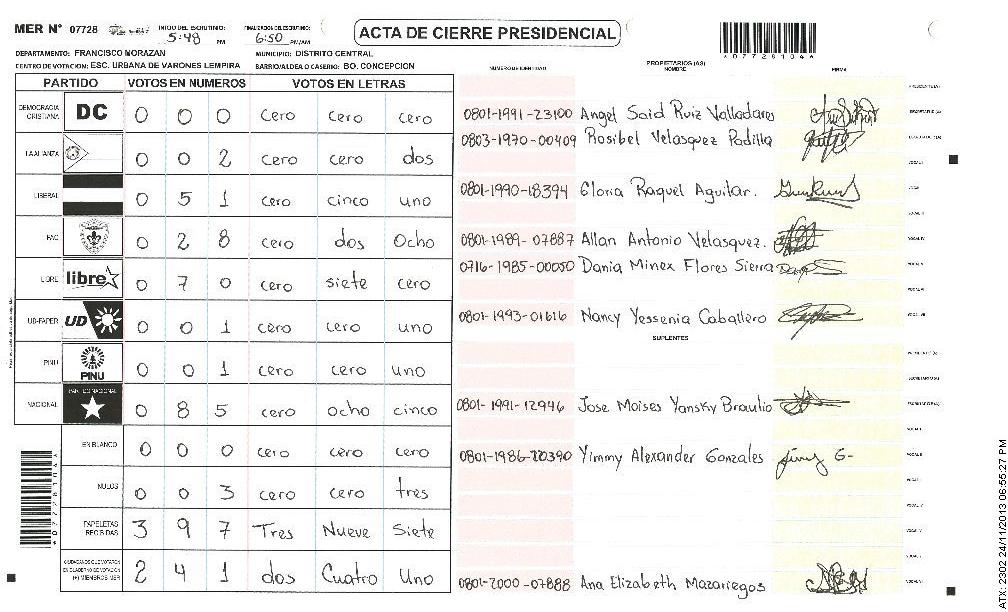 MER N° 07728
INICIO DEL ESCRUTINIO: 5:48 PM
FINALIZACION DEL ESCRUTINIO: 6:50 PM/AM
ACTA DE CIERRE PRESIDENCIAL
*07728104*
DEPARTAMENTO: FRANCISCO MORAZAN MUNICIPIO: DISTRITO CENTRAL
CENTRO DE VOTACION: ESC. URBANA DE VARONES LEMPIRA BARRIO/ALDEA O CASERIO: BO. CONCEPCION
PARTIDO VOTOS EN NUMEROS VOTOS EN LETRAS
DEMOCRACIA CRISTIANA DC 0 0 0 cero cero cero
LA ALIANZA 0 0 2 cero cero dos
LIBERAL 0 5 1 cero cinco uno
FAC 0 2 8 cero dos Ocho
LIBRE libre 0 7 0 cero siete cero
UD-FAPER UD 0 0 1 cero cero uno
PINU PINU 0 0 1 cero cero uno
NACIONAL PARTIDO NACIONAL 0 8 5 cero ocho cinco
EN BLANCO 0 0 0 cero cero cero
NULOS 0 0 3 cero cero tres
PAPELETAS RECIBIDAS 3 9 7 Tres Nueve Siete
CIUDADANOS QUE VOTARON EN CUADERNO DE VOTACION (+) MIEMBROS MER 2 4 1 dos Cuatro Uno
NUMERO DE IDENTIDAD PROPIETARIOS (AS) NOMBRE FIRMA
0801-1991-23100 Angel Said Ruiz Valladares
0803-1970-00409 Rosibel Velasquez Padilla
0801-1990-18394 Gloria Raquel Aguilar.
0801-1989-07887 Allan Antonio Velasquez.
0716-1985-00050 Dania Minex Flores Sierra
0801-1993-01616 Nancy Yessenia Caballero
SUPLENTES
0801-1991-12946 Jose Moises Yansky Braulio
0801-1986-20390 Yimmy Alexander Gonzales
0801-2000-07888 Ana Elizabeth Mazariegos
ATX 2302 24/11/2013 06:55:27 PM